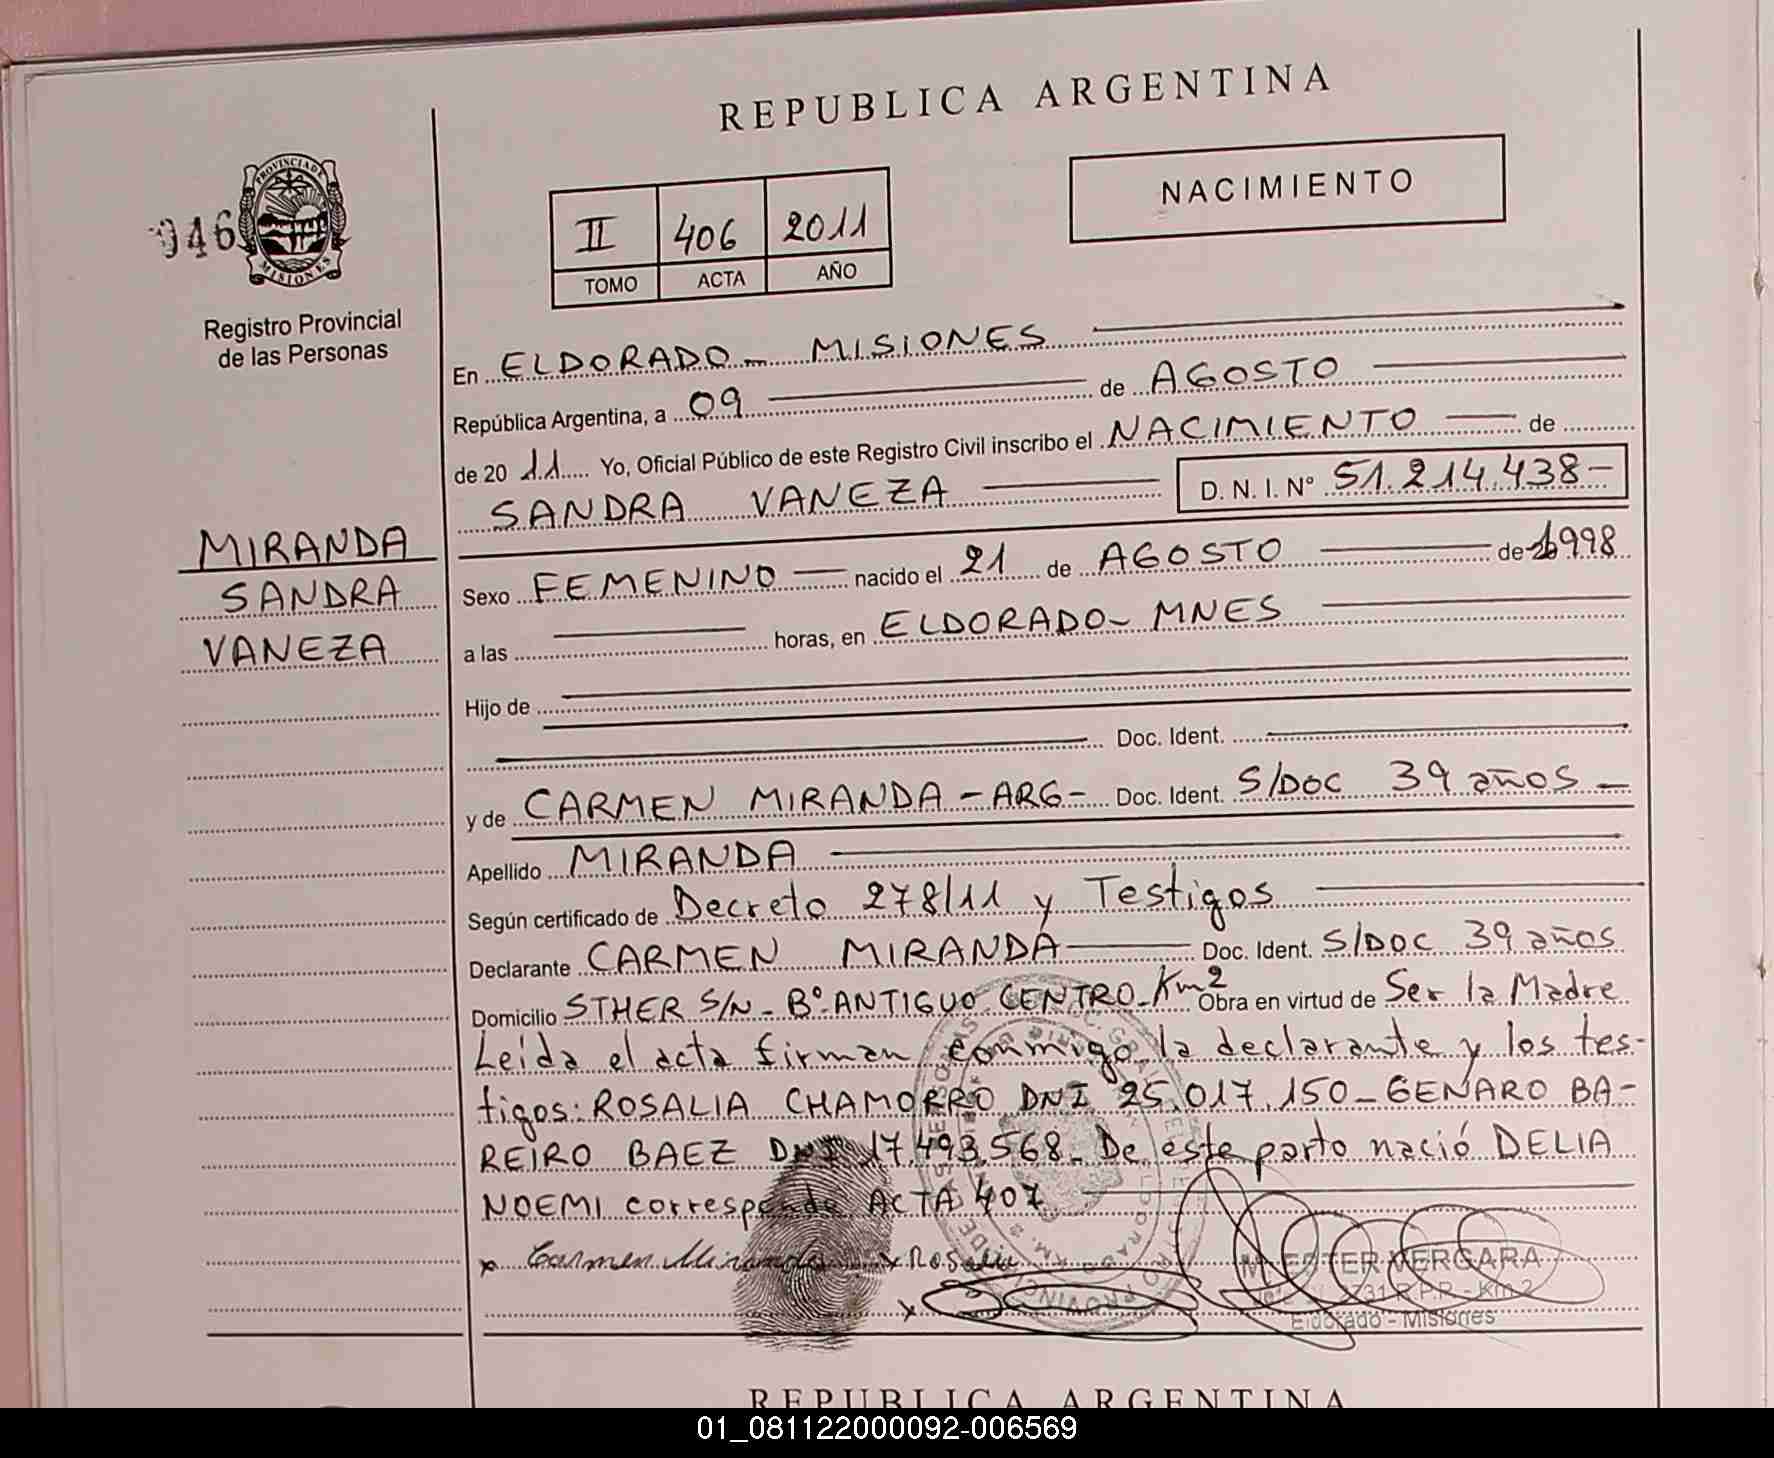 REPUBLICA ARGENTINA
NACIMIENTO
II 406 2011
TOMO ACTA AÑO
046
PROVINCIA DE MISIONES
Registro Provincial
de las Personas
MIRANDA
SANDRA
VANEZA
En ELDORADO - MISIONES
República Argentina, a 09 de AGOSTO
de 2011 Yo, Oficial Público de este Registro Civil inscribo el NACIMIENTO de
SANDRA VANEZA D. N. I. N° 51.214.438-
Sexo FEMENINO nacido el 21 de AGOSTO de 1998
a las horas, en ELDORADO - MNES
Hijo de
Doc. Ident.
y de CARMEN MIRANDA - ARG - Doc. Ident. S/DOC 39 años
Apellido MIRANDA
Según certificado de Decreto 278/11 y Testigos
Declarante CARMEN MIRANDA Doc. Ident. S/DOC 39 años
Domicilio STHER S/N - B° ANTIGUO CENTRO - Km 2 Obra en virtud de Ser la Madre
Leída el acta firman conmigo la declarante y los tes-
tigos: ROSALIA CHAMORRO DNI 25.017.150 - GENARO BA-
REIRO BAEZ DNI 17.493.568. De este parto nació DELIA
NOEMI corresponde ACTA 407
x Carmen Miranda x Rosalia
x
M. ESTER VERGARA
R.P.P. - Km 2
Eldorado - Misiones
REPUBLICA ARGENTINA
01_081122000092-006569